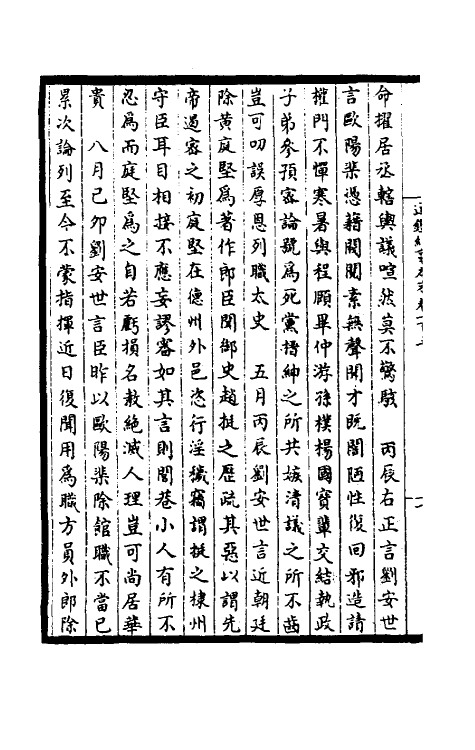 命擢居丞轄輿議喧然莫不驚駭　丙辰右正言劉安世
言歐陽棐憑藉閥閱素無聲聞才既闇陋性復回邪造請
權門不憚寒暑與程頤畢仲游孫樸楊國寶輩交結執政
子弟參預密論號為死黨搢紳之所共嫉清議之所不齒
豈可叨誤厚恩列職太史　五月丙辰劉安世言近朝廷
除黃庭堅為著作郎臣聞御史趙挺之歷疏其惡以謂先
帝遏密之初庭堅在德州外邑恣行淫穢竊謂挺之棣州
守臣耳目相接不應妄謬審如其言則閭巷小人有所不
忍為而庭堅為之自若虧損名教絕滅人理豈可尚居華
貴　八月己卯劉安世言臣昨以歐陽棐除館職不當已
累次論列至今不蒙指揮近日復聞用為職方員外郎除